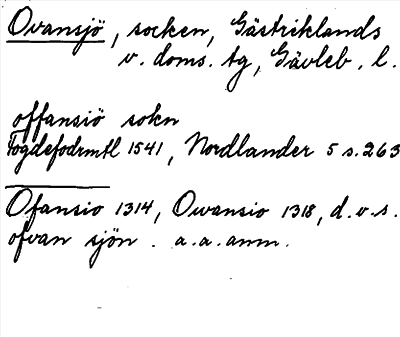 Ovansjö, socken, Gästriklands
v. doms. tg, Gävleb. l.
offansiö sokn
Fogdefodrmtl 1541, Nordlander 5 s. 263
Ofansio 1314, Owansio 1318, d.v.s.
ofvan sjön. a.a. anm.